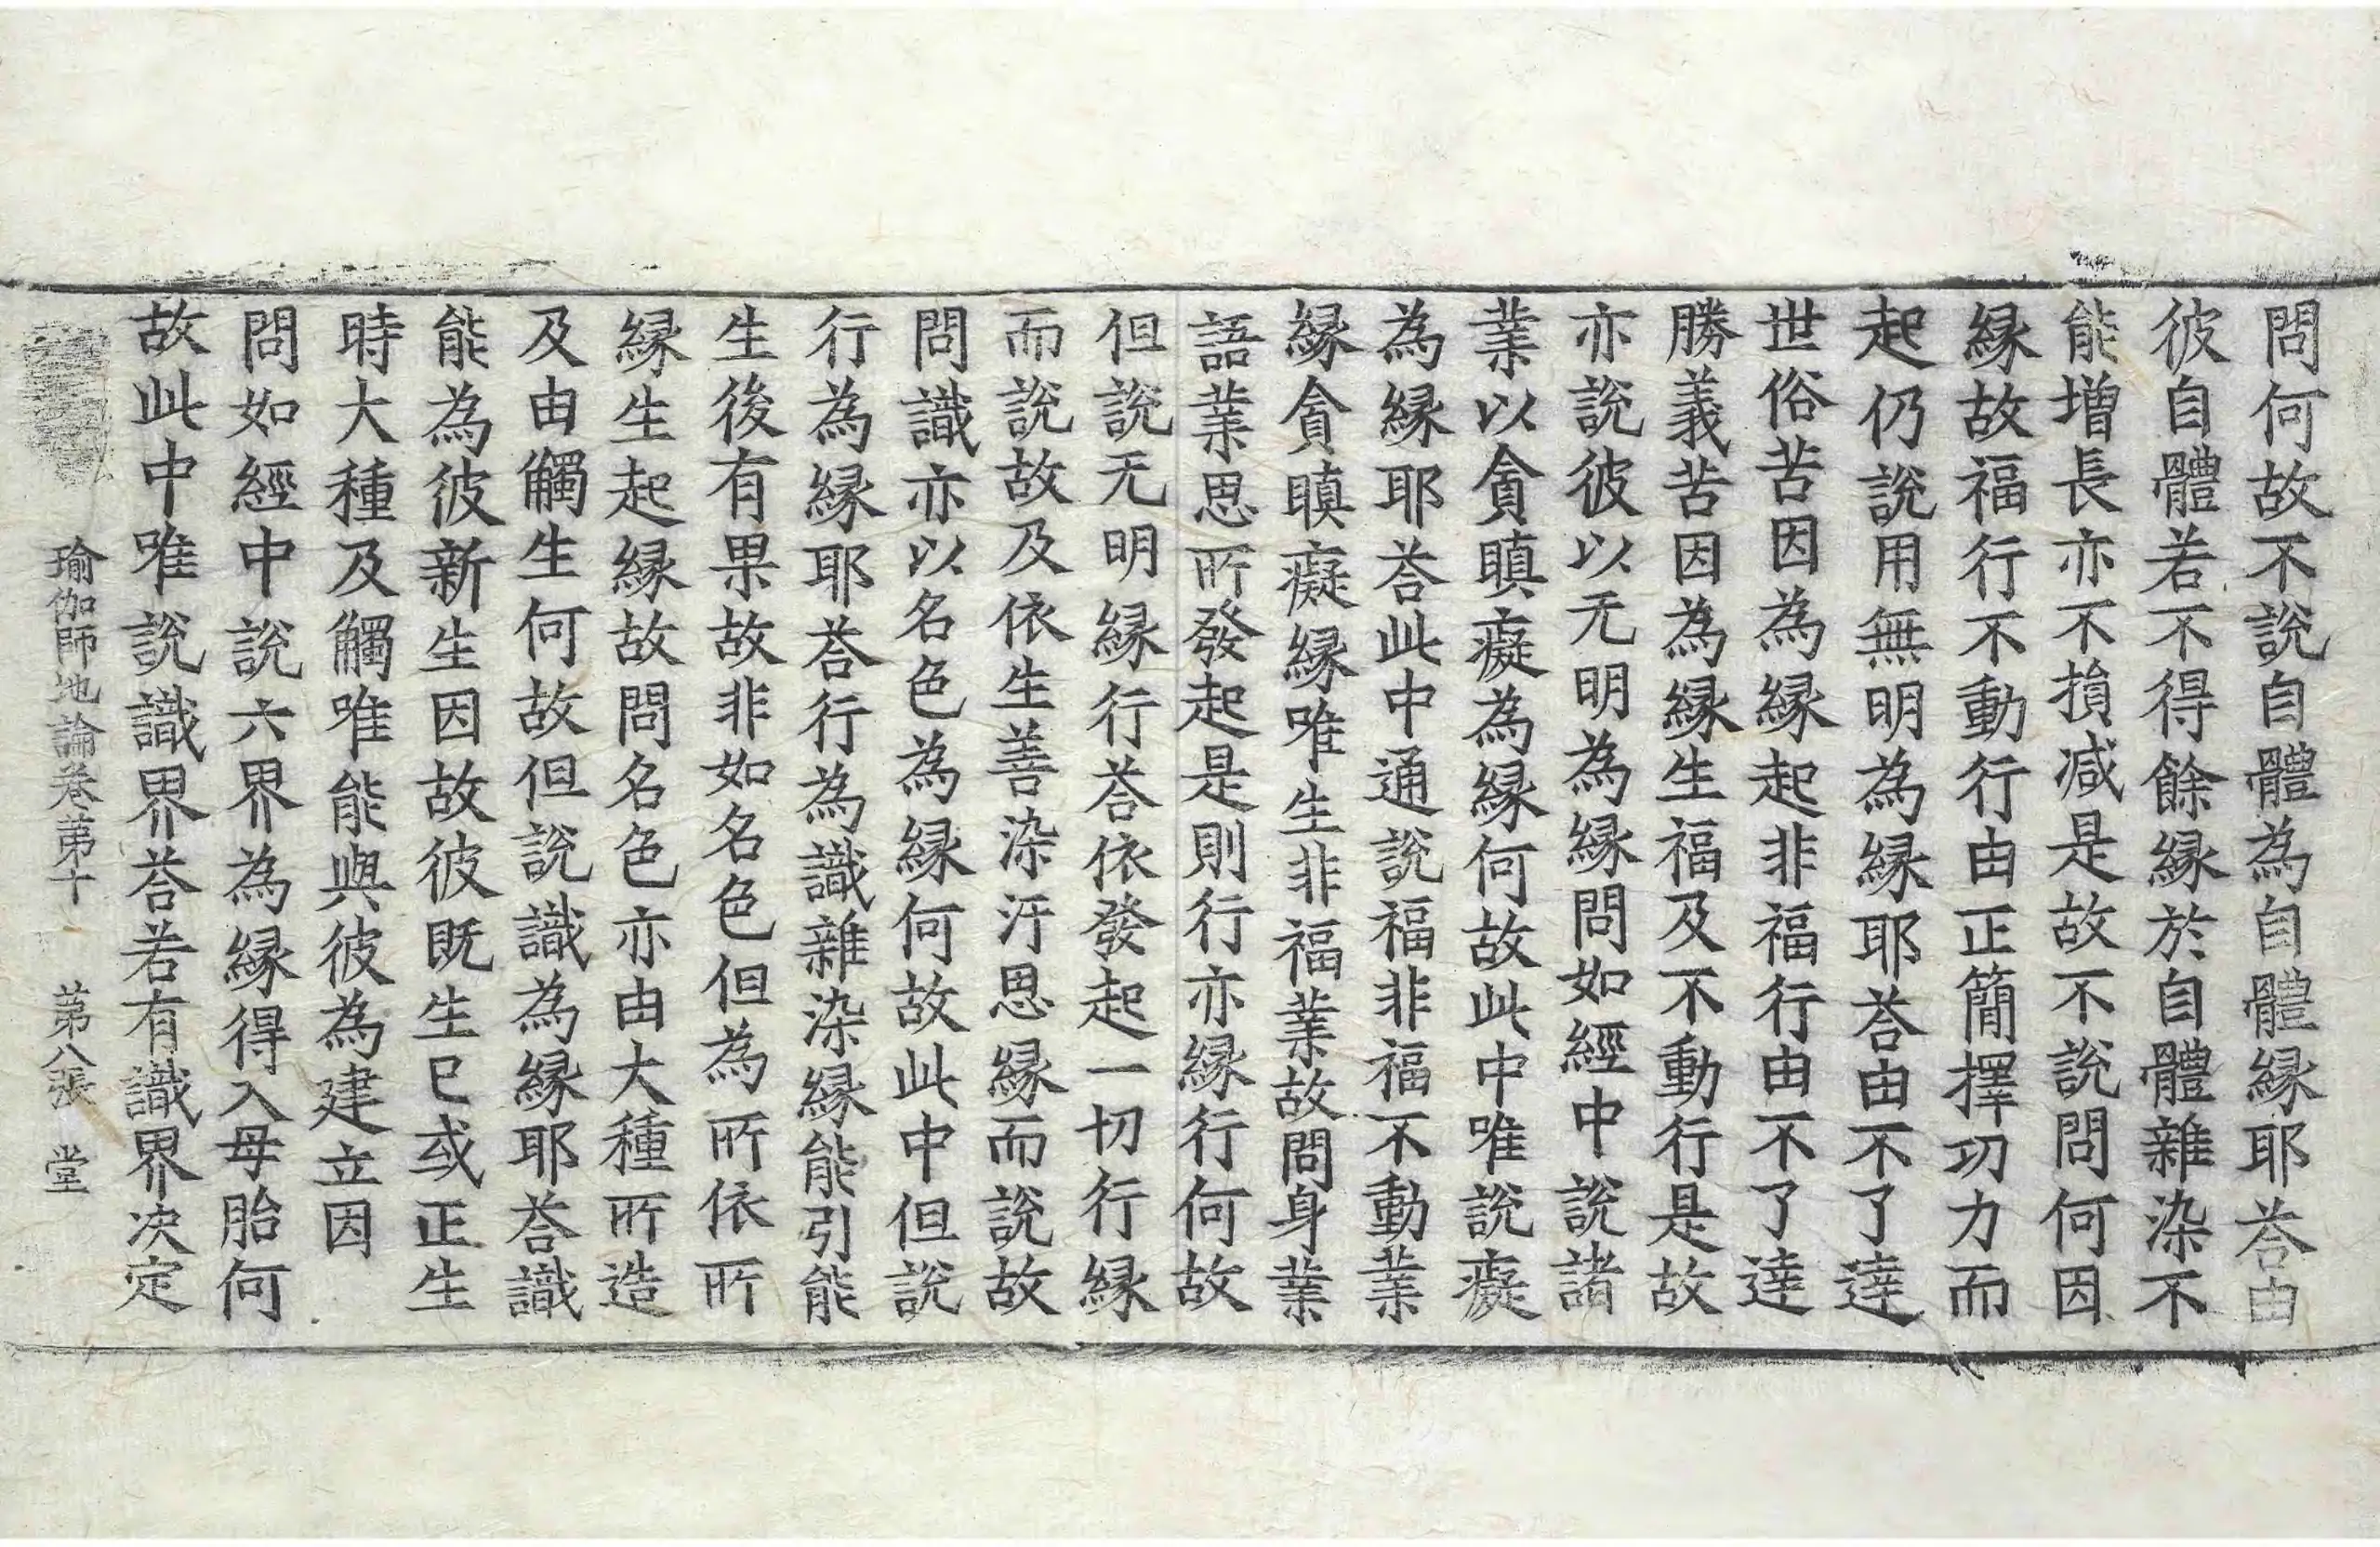 問何故不說自體為自體縁耶荅由
彼自體若不得餘縁於自體雜染不
能增長亦不損减是故不說問何因
縁故福行不動行由正簡擇功力而
起仍說用無明為縁耶荅由不了達
世俗苦因為縁起非福行由不了達
勝義苦因為縁生福及不動行是故
亦說彼以无明為縁問如經中說諸
業以貪瞋癡為縁何故此中唯說癡
為縁耶荅此中通說福非福不動業
縁貪瞋癡縁唯生非福業故問身業
語業思所發起是則行亦縁行何故
但說无明縁行荅依發起一切行縁
而說故及依生善染汙思縁而說故
問識亦以名色為縁何故此中但說
行為縁耶荅行為識雜染縁能引能
生後有果故非如名色但為所依所
縁生起縁故問名色亦由大種所造
及由觸生何故但說識為縁耶荅識
能為彼新生因故彼既生已或正生
時大種及觸唯能與彼為建立因
問如經中說六界為縁得入母胎何
故此中唯說識界荅若有識界决定
瑜伽師地論卷第十 第八張 堂